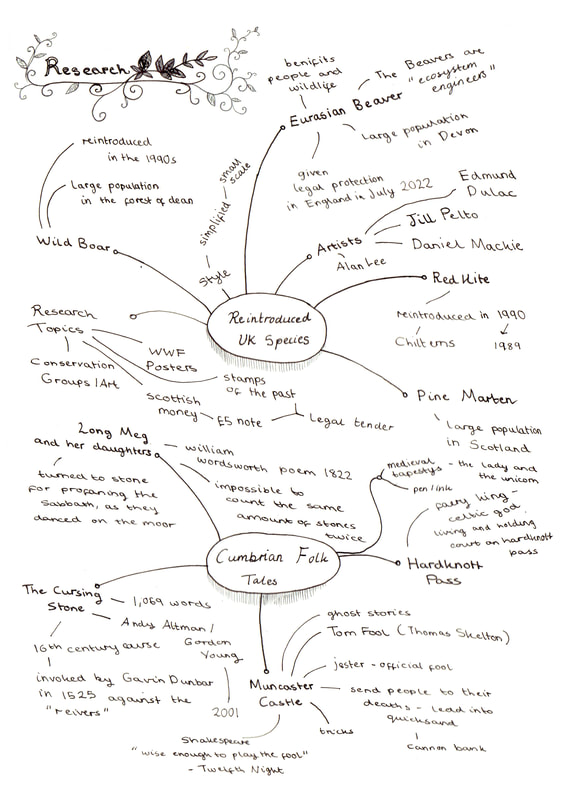 Research
benifits
people and
wildlife
The Beavers are
"ecosystem
engineers"
Eurasian Beaver
Large population
in Devon
given
legal protection
in England in July 2022
reintroduced
in the 1990s
Large population
in the forest of dean
Wild Boar
small
scale
simplified
Style
Edmund
Dulac
Jill Pelto
Artists
Daniel Mackie
Alan Lee
Red Kite
reintroduced in 1990
Chilterns
1989
Reintroduced
UK Species
Research
Topics
WWF
Posters
Conservation
Groups / Art
stamps
of the past
scottish
money
£5 note
Legal tender
Pine Marten
Large population
in Scotland
Long Meg
and her daughters
william
wordsworth poem 1822
impossible to
count the same
amount of stones
twice
turned to stone
for profaning the
Sabbath, as they
danced on the moor
medieval
tapestys - the lady and
the unicorn
pen/ink
fairy king -
celtic god
living and holding
court on hardknott
pass
Hardknott
Pass
Cumbrian Folk
Tales
The Cursing
Stone
1,069 words
Andy Altman /
Gordon
Young
2001
16th century curse
invoked by Gavin Dunbar
in 1525 against the
"reivers"
Muncaster
Castle
ghost stories
Tom Fool (Thomas Skelton)
jester - official fool
send people to their
deaths - lead into
quicksand
cannon bank
tricks
Shakespeare
"wise enough to play the fool"
- Twelfth Night